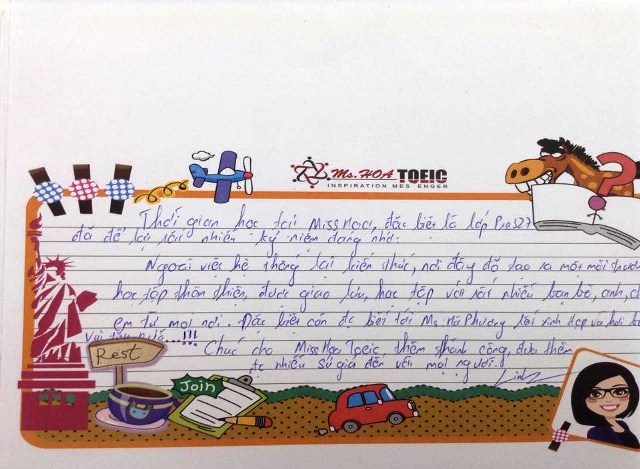 Ms. HOA TOEIC
INSPIRATION MESSENGER
Thời gian học tại Miss Hoa, đặc biệt là lớp Pre S27
đã để lại rất nhiều kỷ niệm đáng nhớ.
Ngoài việc hệ thống lại kiến thức, nơi đây đã tạo ra một môi trườ
học tập thân thiện, được giao lưu, học tập với rất nhiều bạn bè, anh, c
em từ mọi nơi. Đặc biệt còn đc biết tới Ms. Hà Phương rất xinh đẹp và
!!! Chúc cho Miss Hoa Toeic thêm thành công, đưa thêm
đc nhiều sứ giả đến với mọi người!
Linh
Rest
Join